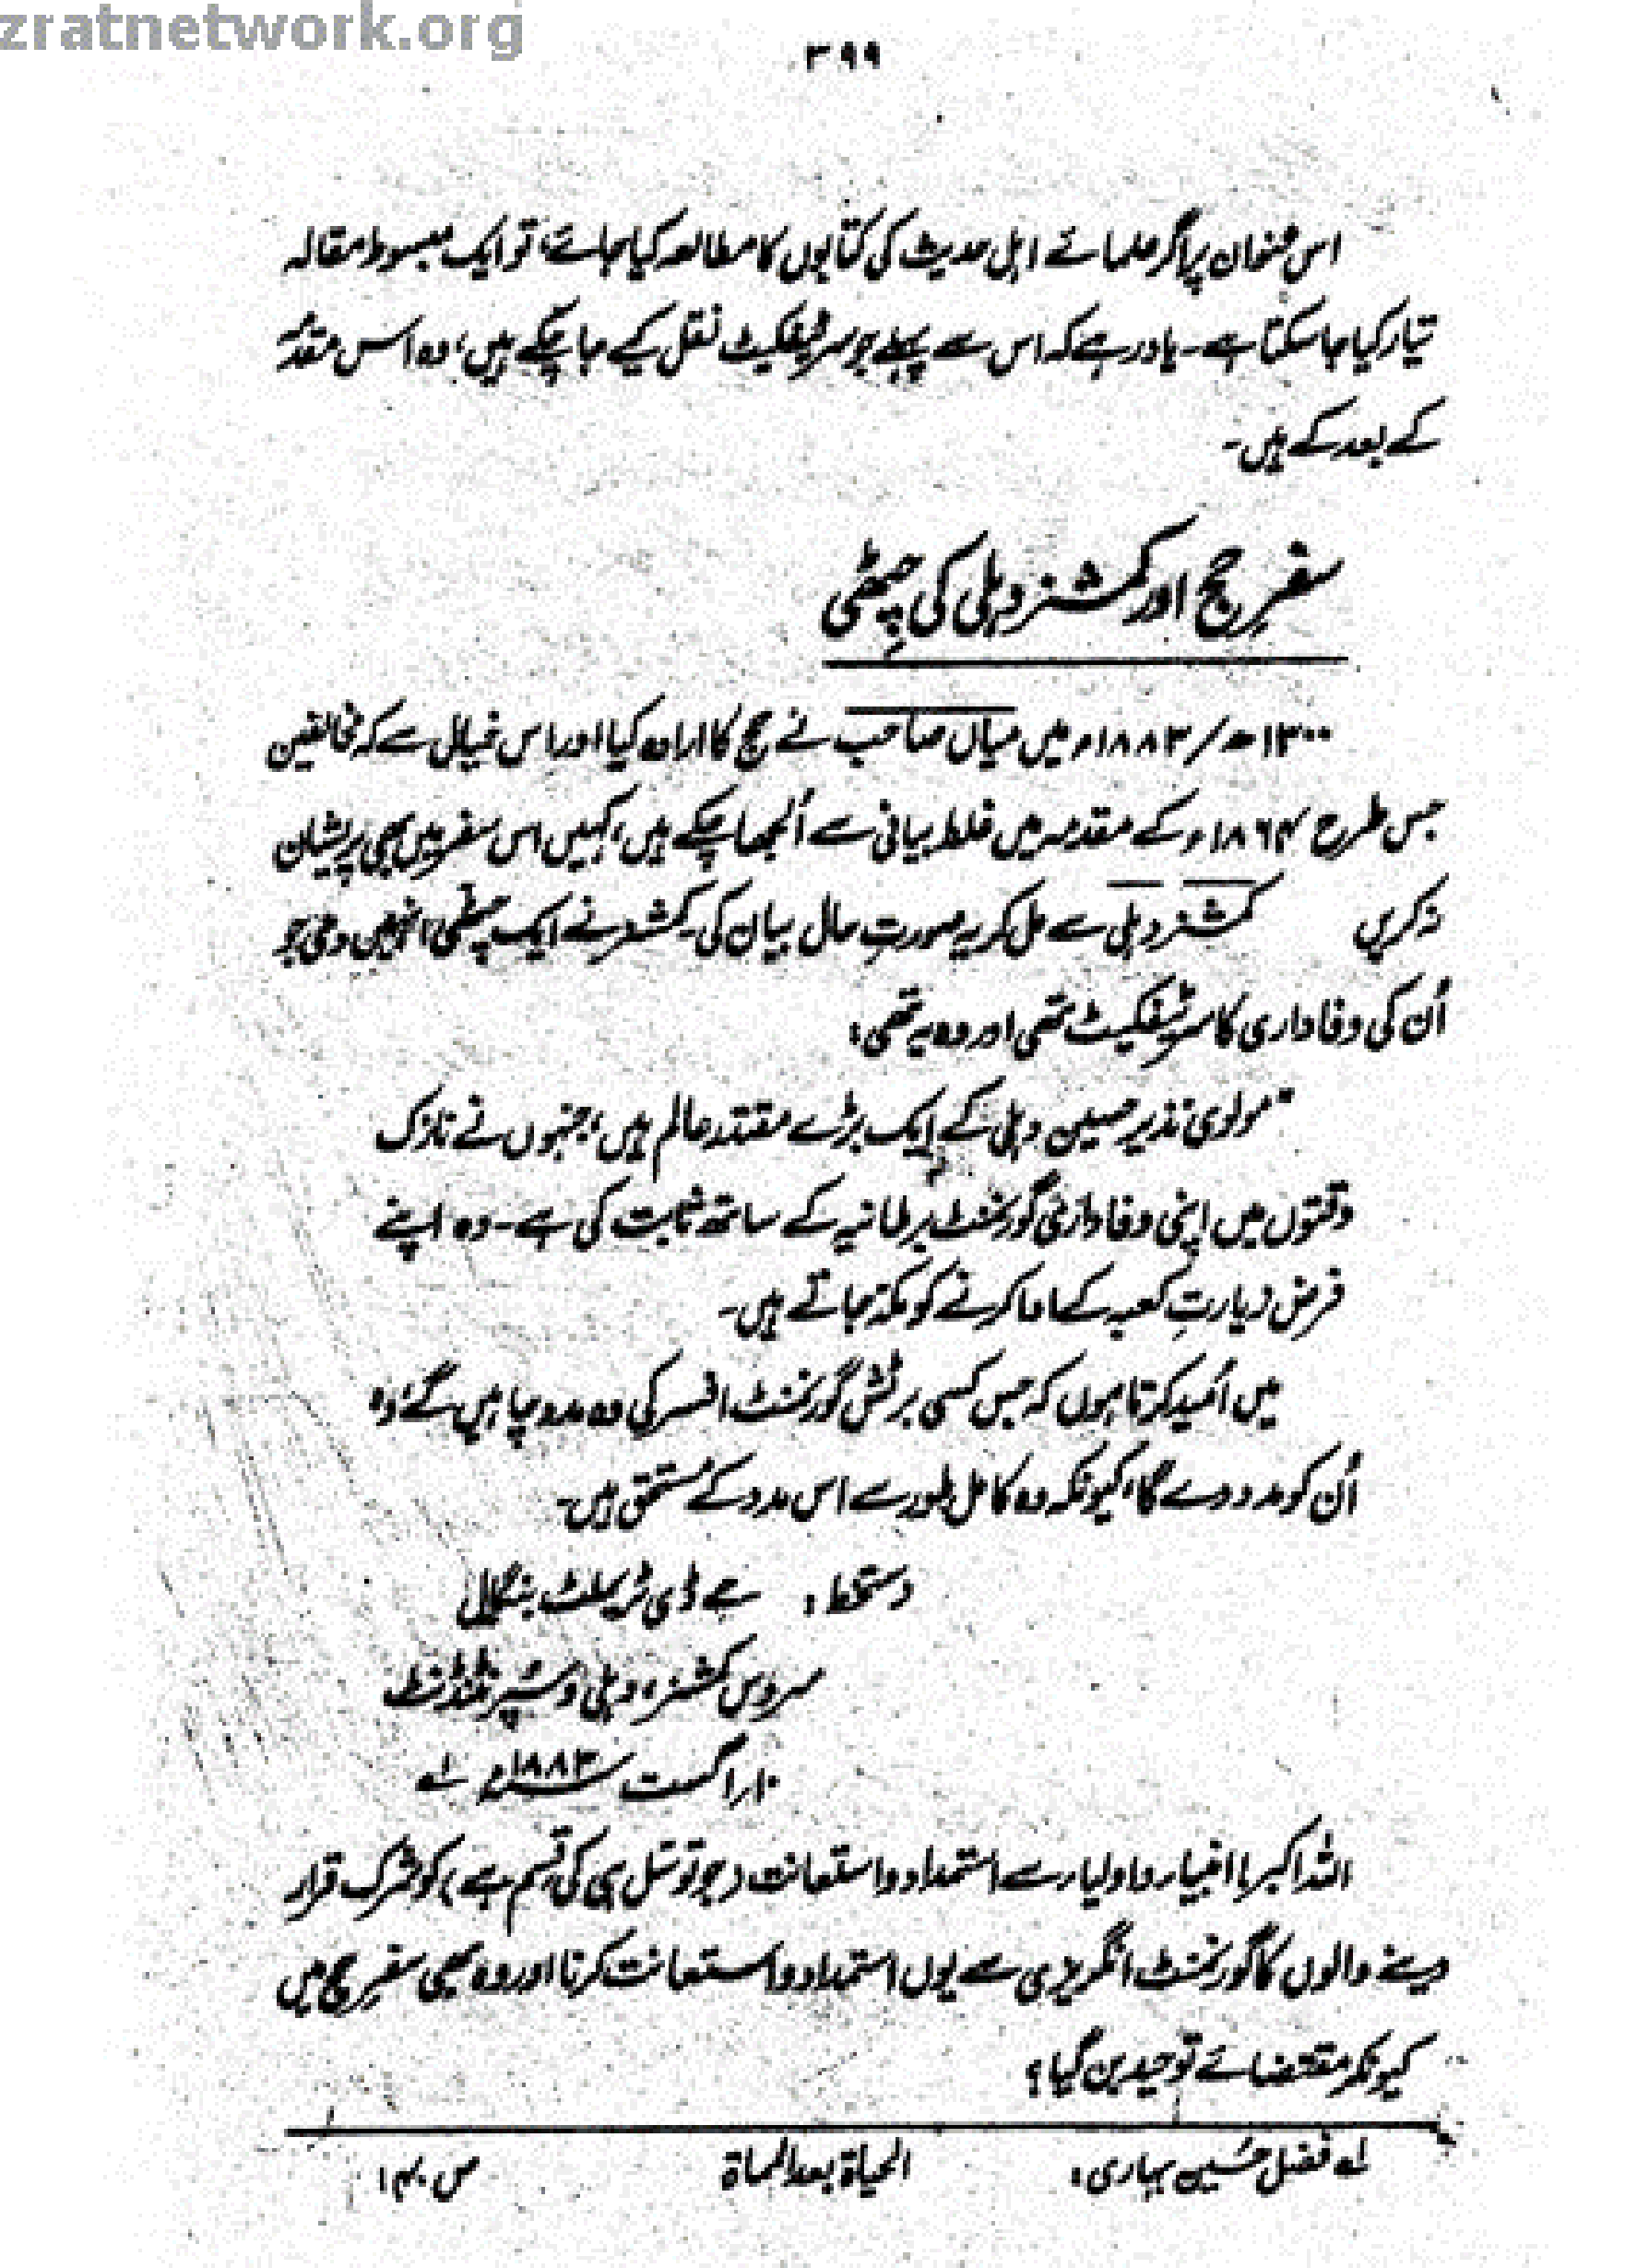 zratnetwork.org
۳۹۹
اس عنوان پر اگر علمائے اہلِ حدیث کی کتابوں کا مطالعہ کیا جائے، تو ایک مبسوط مقالہ
تیار کیا جا سکتا ہے۔ یاد رہے کہ اس سے پہلے جو سرٹیفکیٹ نقل کیے جا چکے ہیں، وہ اسس مقدمہ
کے بعد کے ہیں۔
سفرِ حج اور کمشنر دہلی کی چٹھی
۱۳۰۰ھ/۱۸۸۳ء میں میاں صاحب نے حج کا ارادہ کیا اور اس خیال سے کہ مخالفین
جس طرح ۱۸۶۴ء کے مقدمہ میں غلط بیانی سے اُلجھا چکے ہیں، کہیں اس سفر میں بھی پریشان
نہ کریں کمشنر دہلی سے مل کر یہ صورتِ حال بیان کی۔ کمشنر نے ایک چٹھی انھیں دی جو
اُن کی وفاداری کا سرٹیفکیٹ تھی اور وہ یہ تھی:
"مولوی نذیر حسین دہلی کے ایک بڑے مقتدر عالم ہیں، جنہوں نے نازک
وقتوں میں اپنی وفاداری گورنمنٹ برطانیہ کے ساتھ ثابت کی ہے۔ وہ اپنے
فرض زیارتِ کعبہ کے ادا کرنے کو مکہ جاتے ہیں۔
میں اُمید کرتا ہوں کہ جس کسی برٹش گورنمنٹ افسر کی وہ مدد چاہیں گے، وہ
اُن کو مدد دے گا، کیونکہ وہ کامل طور سے اس مدد کے مستحق ہیں۔
دستخط: جے ڈی ٹریملٹ بنگال
سروس کمشنر، دہلی و سپرنٹنڈنٹ
۱۰ر اگست ۱۸۸۳ء لے
اللہ اکبر! انبیاء و اولیاء سے استمداد و استعانت (جو توسّل ہی کی قسم ہے) کو شرک قرار
دینے والوں کا گورنمنٹ انگریزی سے یوں استمداد و استعانت کرنا اور وہ بھی سفرِ حج میں
کیونکر مقتضائے توحید بن گیا؟
لے فضل حسین بہاری: الحیاۃ بعد المماۃ ص ۱۴۰